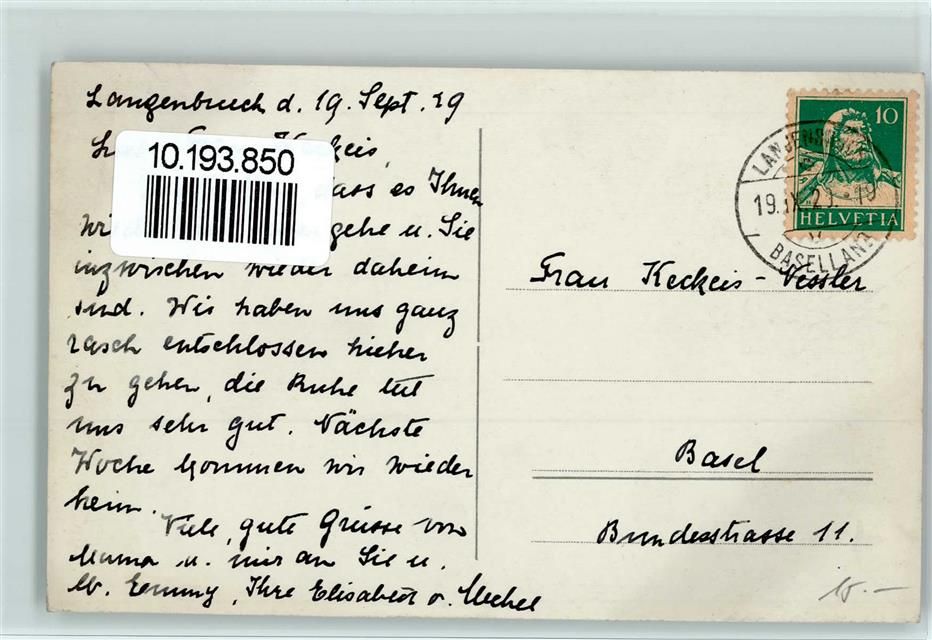 Langenbruck d. 19. Sept. 29
10.193.850
dass es Ihnen
gehe u. Sie
inzwischen wieder daheim
sind. Wir haben uns ganz
rasch entschlossen hieher
zu gehen, die Ruhe tut
uns sehr gut. Nächste
Woche kommen wir wieder
heim.
Viele, gute Grüsse von
Mama u. mir an Sie u.
Emmy, Ihre Elisabeth v.
10
HELVETIA
19.IX.29.
BASELLAND
Frau Keckeis-Vessler
Basel
Bundesstrasse 11.
15.-